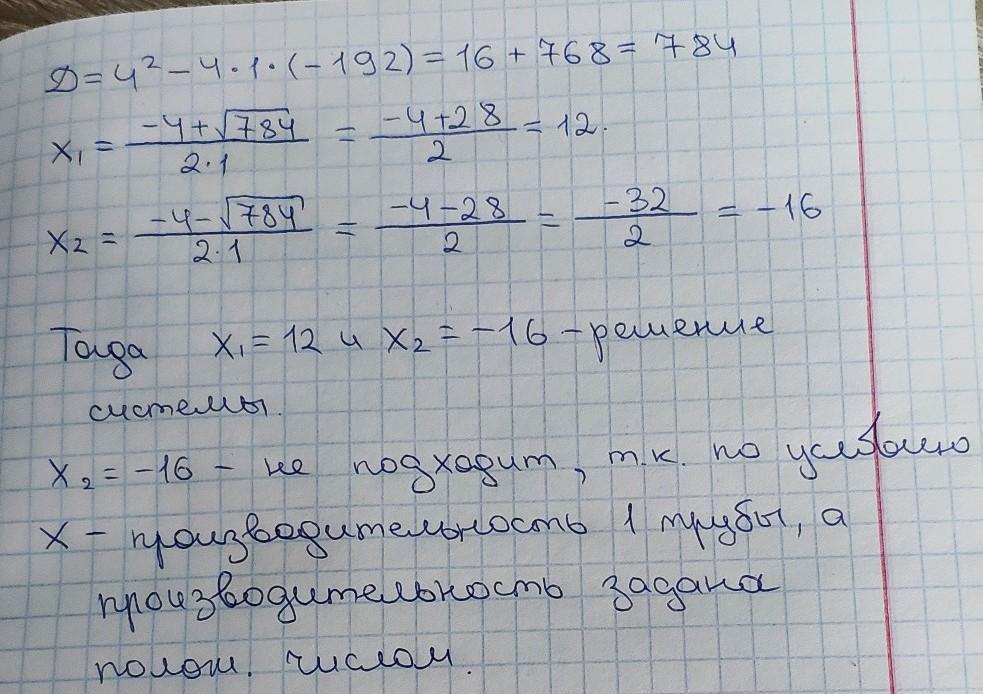 D = 4² - 4·1·(-192) = 16 + 768 = 784
x₁ = (-4+√784)/(2·1) = (-4+28)/2 = 12.
x₂ = (-4-√784)/(2·1) = (-4-28)/2 = -32/2 = -16
Тогда x₁ = 12 и x₂ = -16 - решение
системы.
x₂ = -16 - не подходит, т.к. по условию
x - производительность 1 трубы, а
производительность задана
полож. числом.